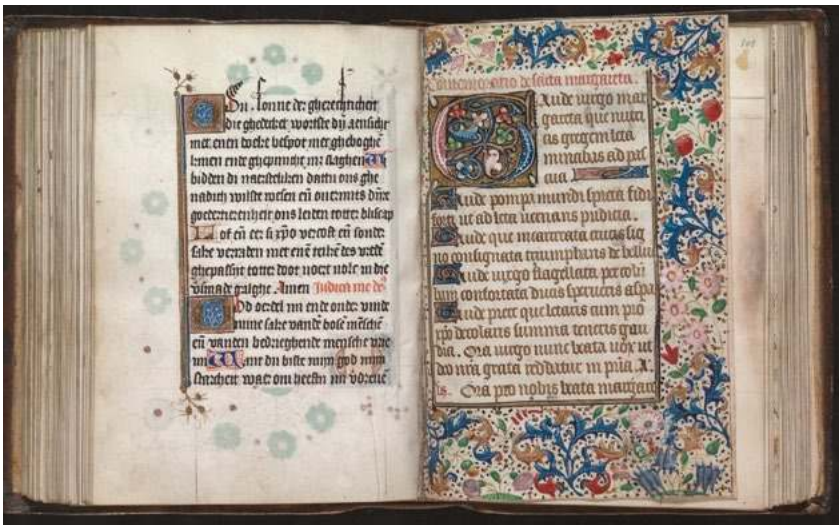 Du sonne der gherechticheit
die ghedecket wordste dyn aensicht
met enen doeke bespot met gheboghe
knien ende ghepinicht mit slaghen Wi
bidden di naersteliken dattu ons ghe
nadich wilste wesen en ouermits dijre
goedertierenheit ons leiden totter bliscap
Lof en eer si xpo vercoft en sonder
sake verraden met ene teike des vrede
ghepassijt totter doot
galghe. Amen Judica me de
God oerdel mi ende onder vinde
mine sake vande bose mesche
en vanden bedrieghende mensche
mi Want du biste mijn god mijn
starcheit waer om heefstu mi
Commemoratio de sancta margareta.
Gaude virgo mar
gareta que nutri
cis gregem leta
minabas ad pas
cua
Gaude pompa mundi spreta fidi
forti ut ad leta uernans pudicia.
Gaude que incarcerata crucis sig
no consignata triumphans de bellua
Gaude virgo flagellata per colu
bam confortata ducis spretis aspa
Gaude prece que letaris cum pro
xpo decolaris summa teneris gau
dia. Ora uirgo nunc beata uox ut
deo nra grata reddatur in pria. V
Ora pro nobis beata margare
101